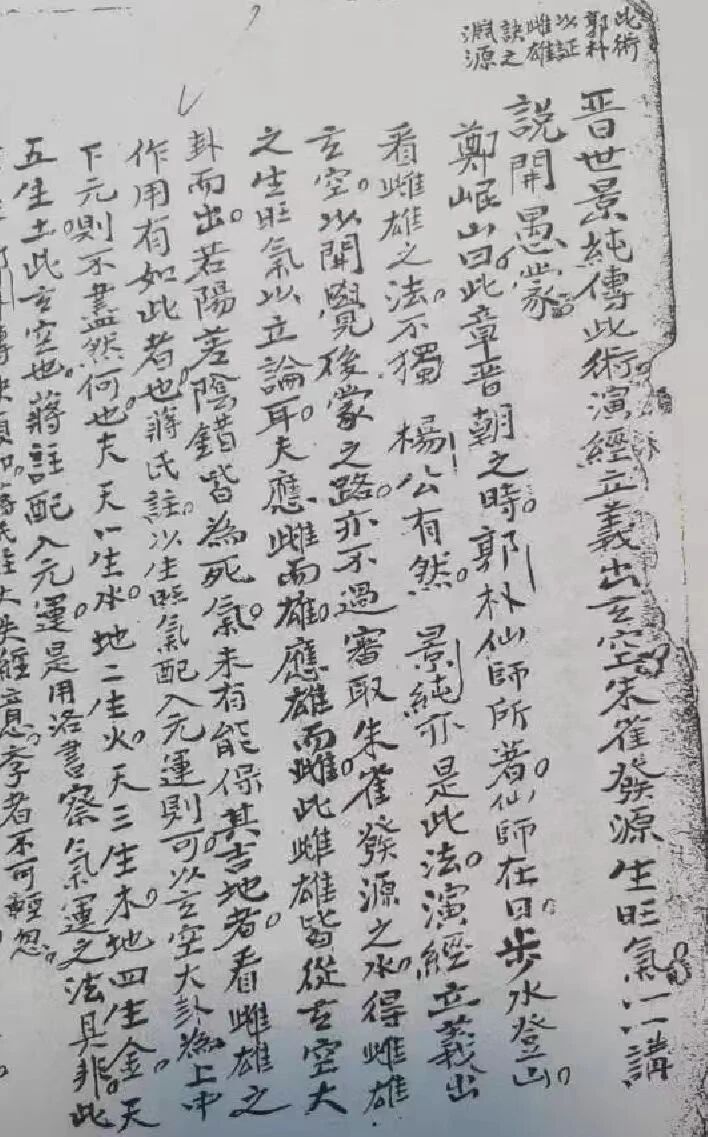 此術
郭朴
以証
雌雄
訣之
淵源
晋世景純傳此術演經立義出玄空朱雀發源生旺氣一一講
說開愚蒙
鄭岷山曰此章晋朝之時。郭朴仙師所著。仙師在日。步水登山。
看雌雄之法。不獨 楊公有然。景純亦是此法。演經立義出
玄空。以開覺後蒙之路。亦不過審取朱雀發源之水。得雌雄
之生旺氣以立論耳。夫應雌而雄。應雄而雌。此雌雄皆從玄空大
卦而出。若陽差陰錯皆為死氣。未有能保其吉地者。看雌雄之
作用有如此者也。蔣氏註。以生旺氣配入元運則可。以玄空大卦為上中
下元。則不盡然。何也。夫天一生水。地二生火。天三生木。地四生金。天
五生土。此玄空也。蔣註配入元運。是用洛書察氣運之法。具非此
蔣氏註大失經意。李者不可輕忽。